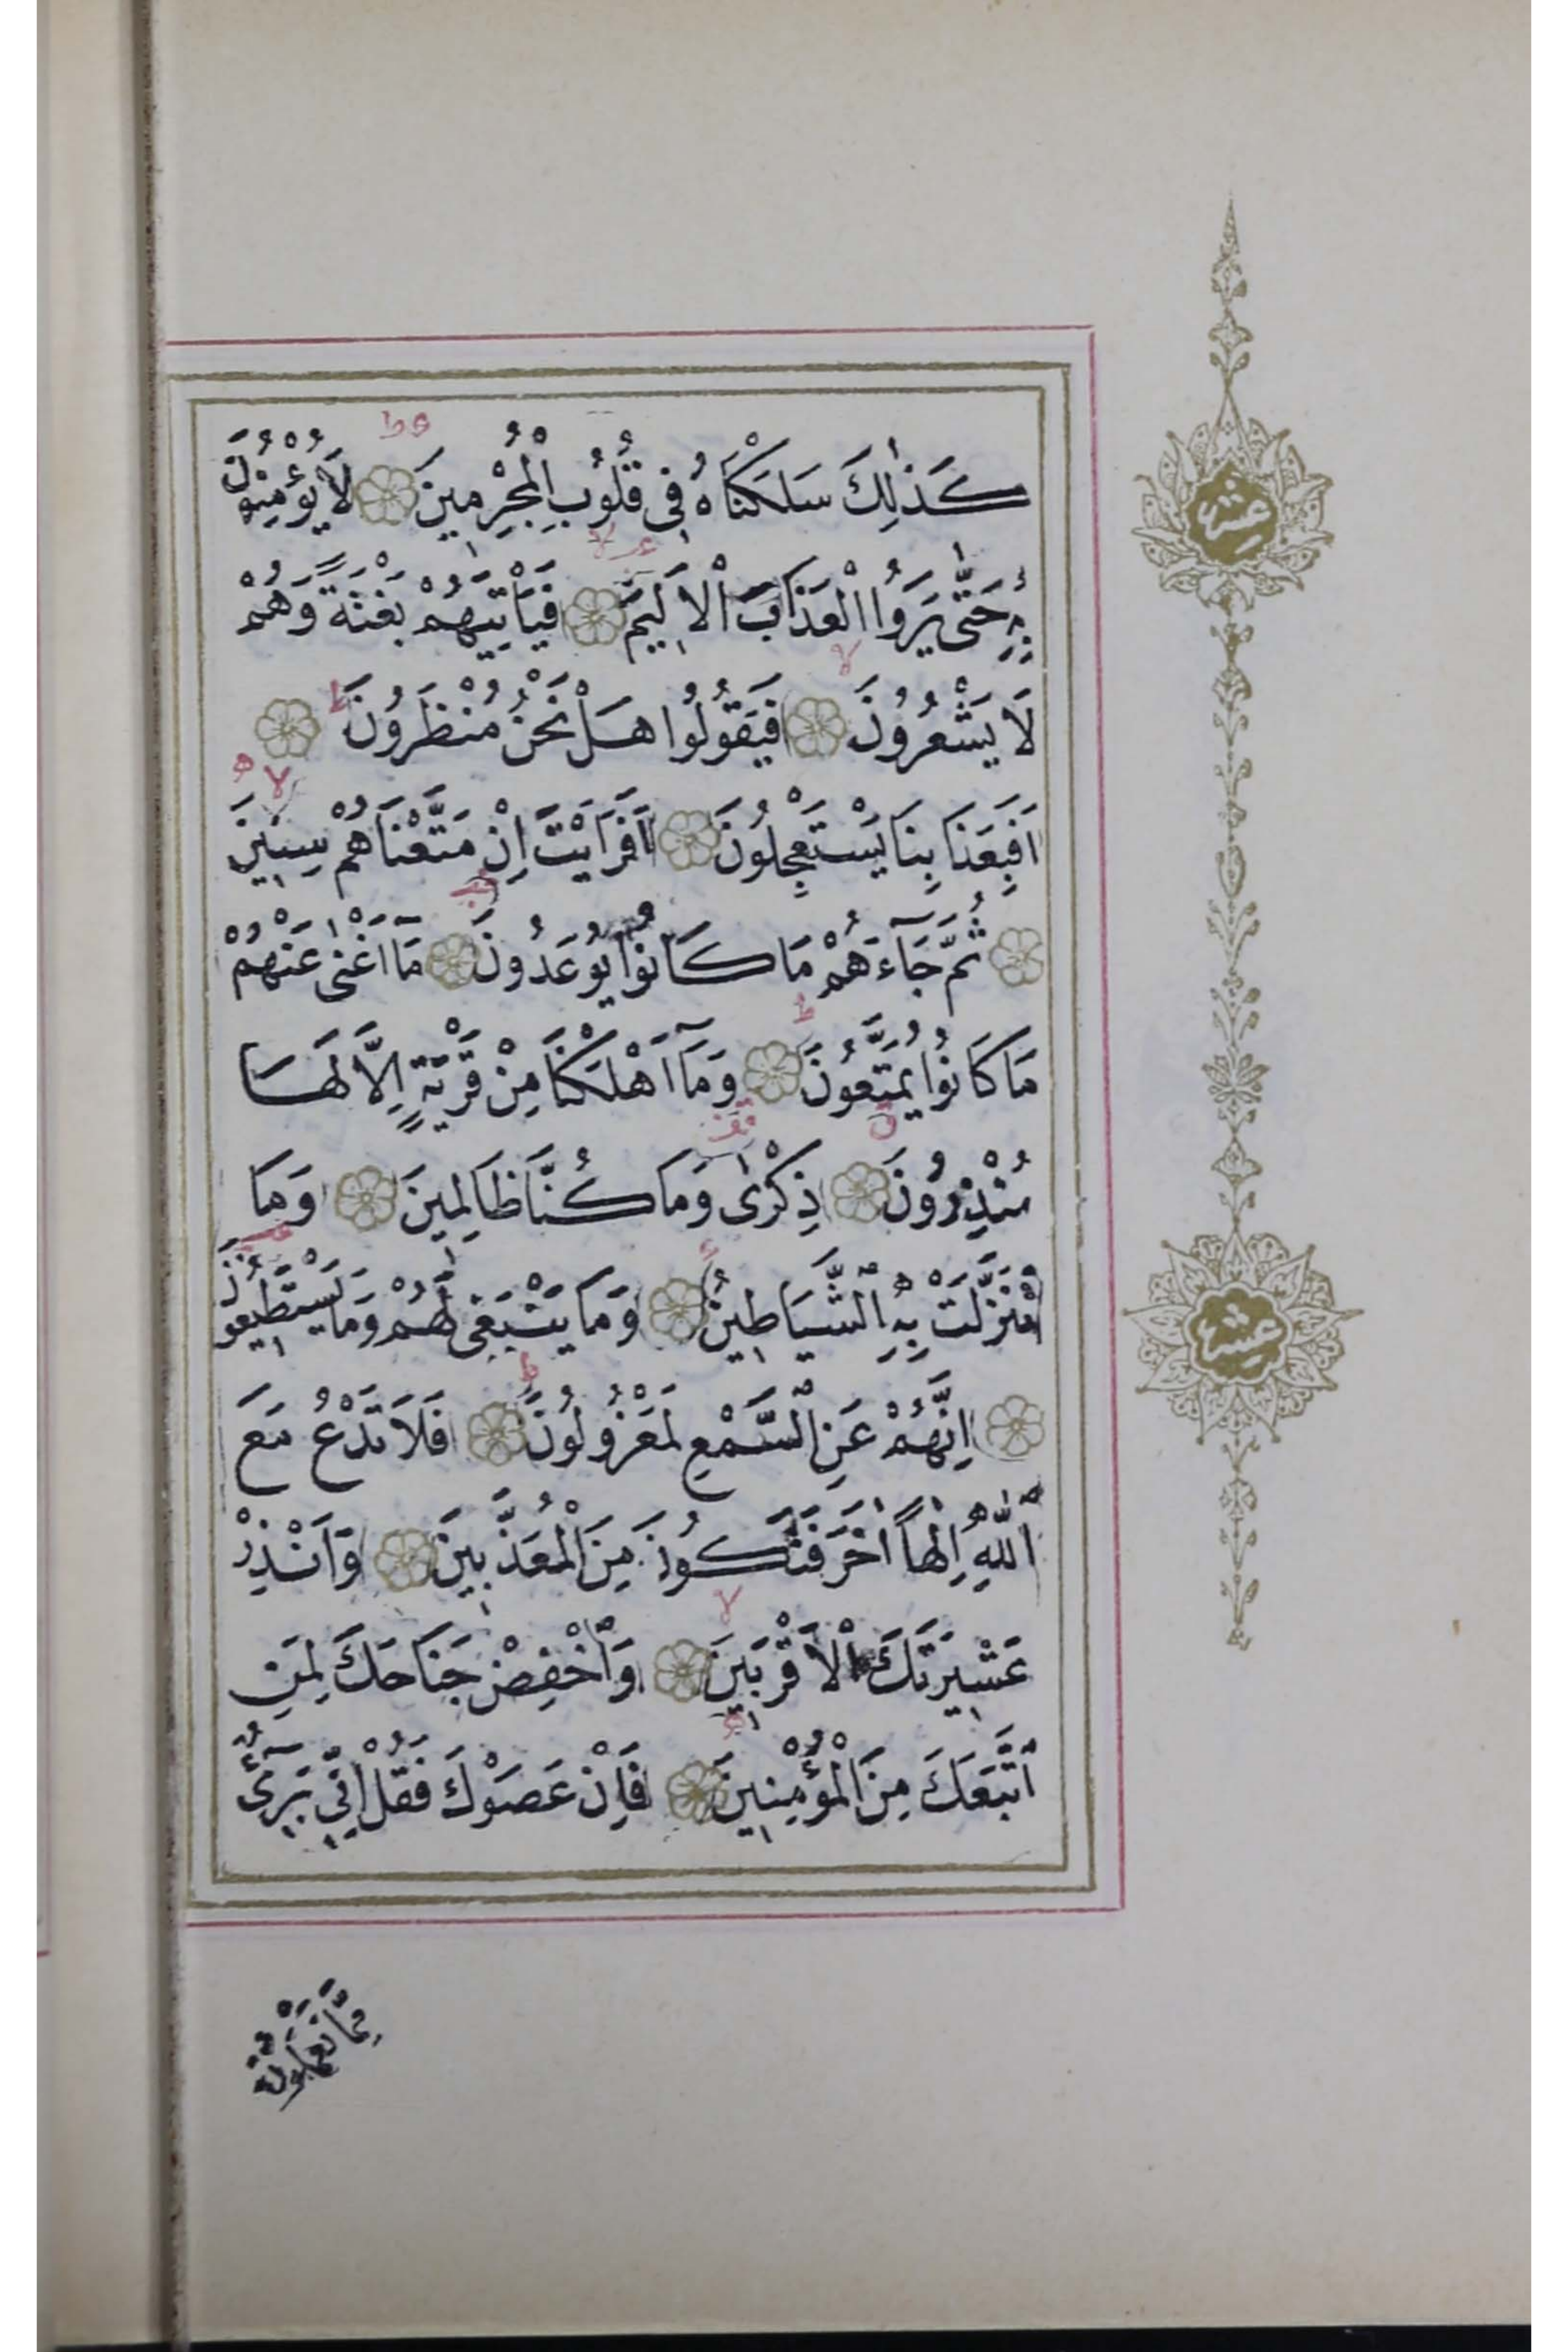 كَذٰلِكَ سَلَكْنَاهُ فِى قُلُوبِ الْمُجْرِمِينَ لَا يُؤْمِنُونَ
بِهٖ حَتّٰى يَرَوُا الْعَذَابَ الْاَلِيمَ فَيَأْتِيَهُمْ بَغْتَةً وَهُمْ
لَا يَشْعُرُونَ فَيَقُولُوا هَلْ نَحْنُ مُنْظَرُونَ
اَفَبِعَذَابِنَا يَسْتَعْجِلُونَ اَفَرَاَيْتَ اِنْ مَتَّعْنَاهُمْ سِنِينَ
ثُمَّ جَآءَهُمْ مَا كَانُوا يُوعَدُونَ مَآ اَغْنٰى عَنْهُمْ
مَا كَانُوا يُمَتَّعُونَ وَمَآ اَهْلَكْنَا مِنْ قَرْيَةٍ اِلَّا لَهَا
مُنْذِرُونَ ذِكْرٰى وَمَا كُنَّا ظَالِمِينَ وَمَا
تَنَزَّلَتْ بِهِ الشَّيَاطِينُ وَمَا يَنْبَغِى لَهُمْ وَمَا يَسْتَطِيعُونَ
اِنَّهُمْ عَنِ السَّمْعِ لَمَعْزُولُونَ فَلَا تَدْعُ مَعَ
اللّٰهِ اِلٰهاً اٰخَرَ فَتَكُونَ مِنَ الْمُعَذَّبِينَ وَاَنْذِرْ
عَشِيرَتَكَ الْاَقْرَبِينَ وَاخْفِضْ جَنَاحَكَ لِمَنِ
اتَّبَعَكَ مِنَ الْمُؤْمِنِينَ فَاِنْ عَصَوْكَ فَقُلْ اِنِّى بَرِىٓءٌ
مِمَّا تَعْمَلُونَ
عشر
عشر